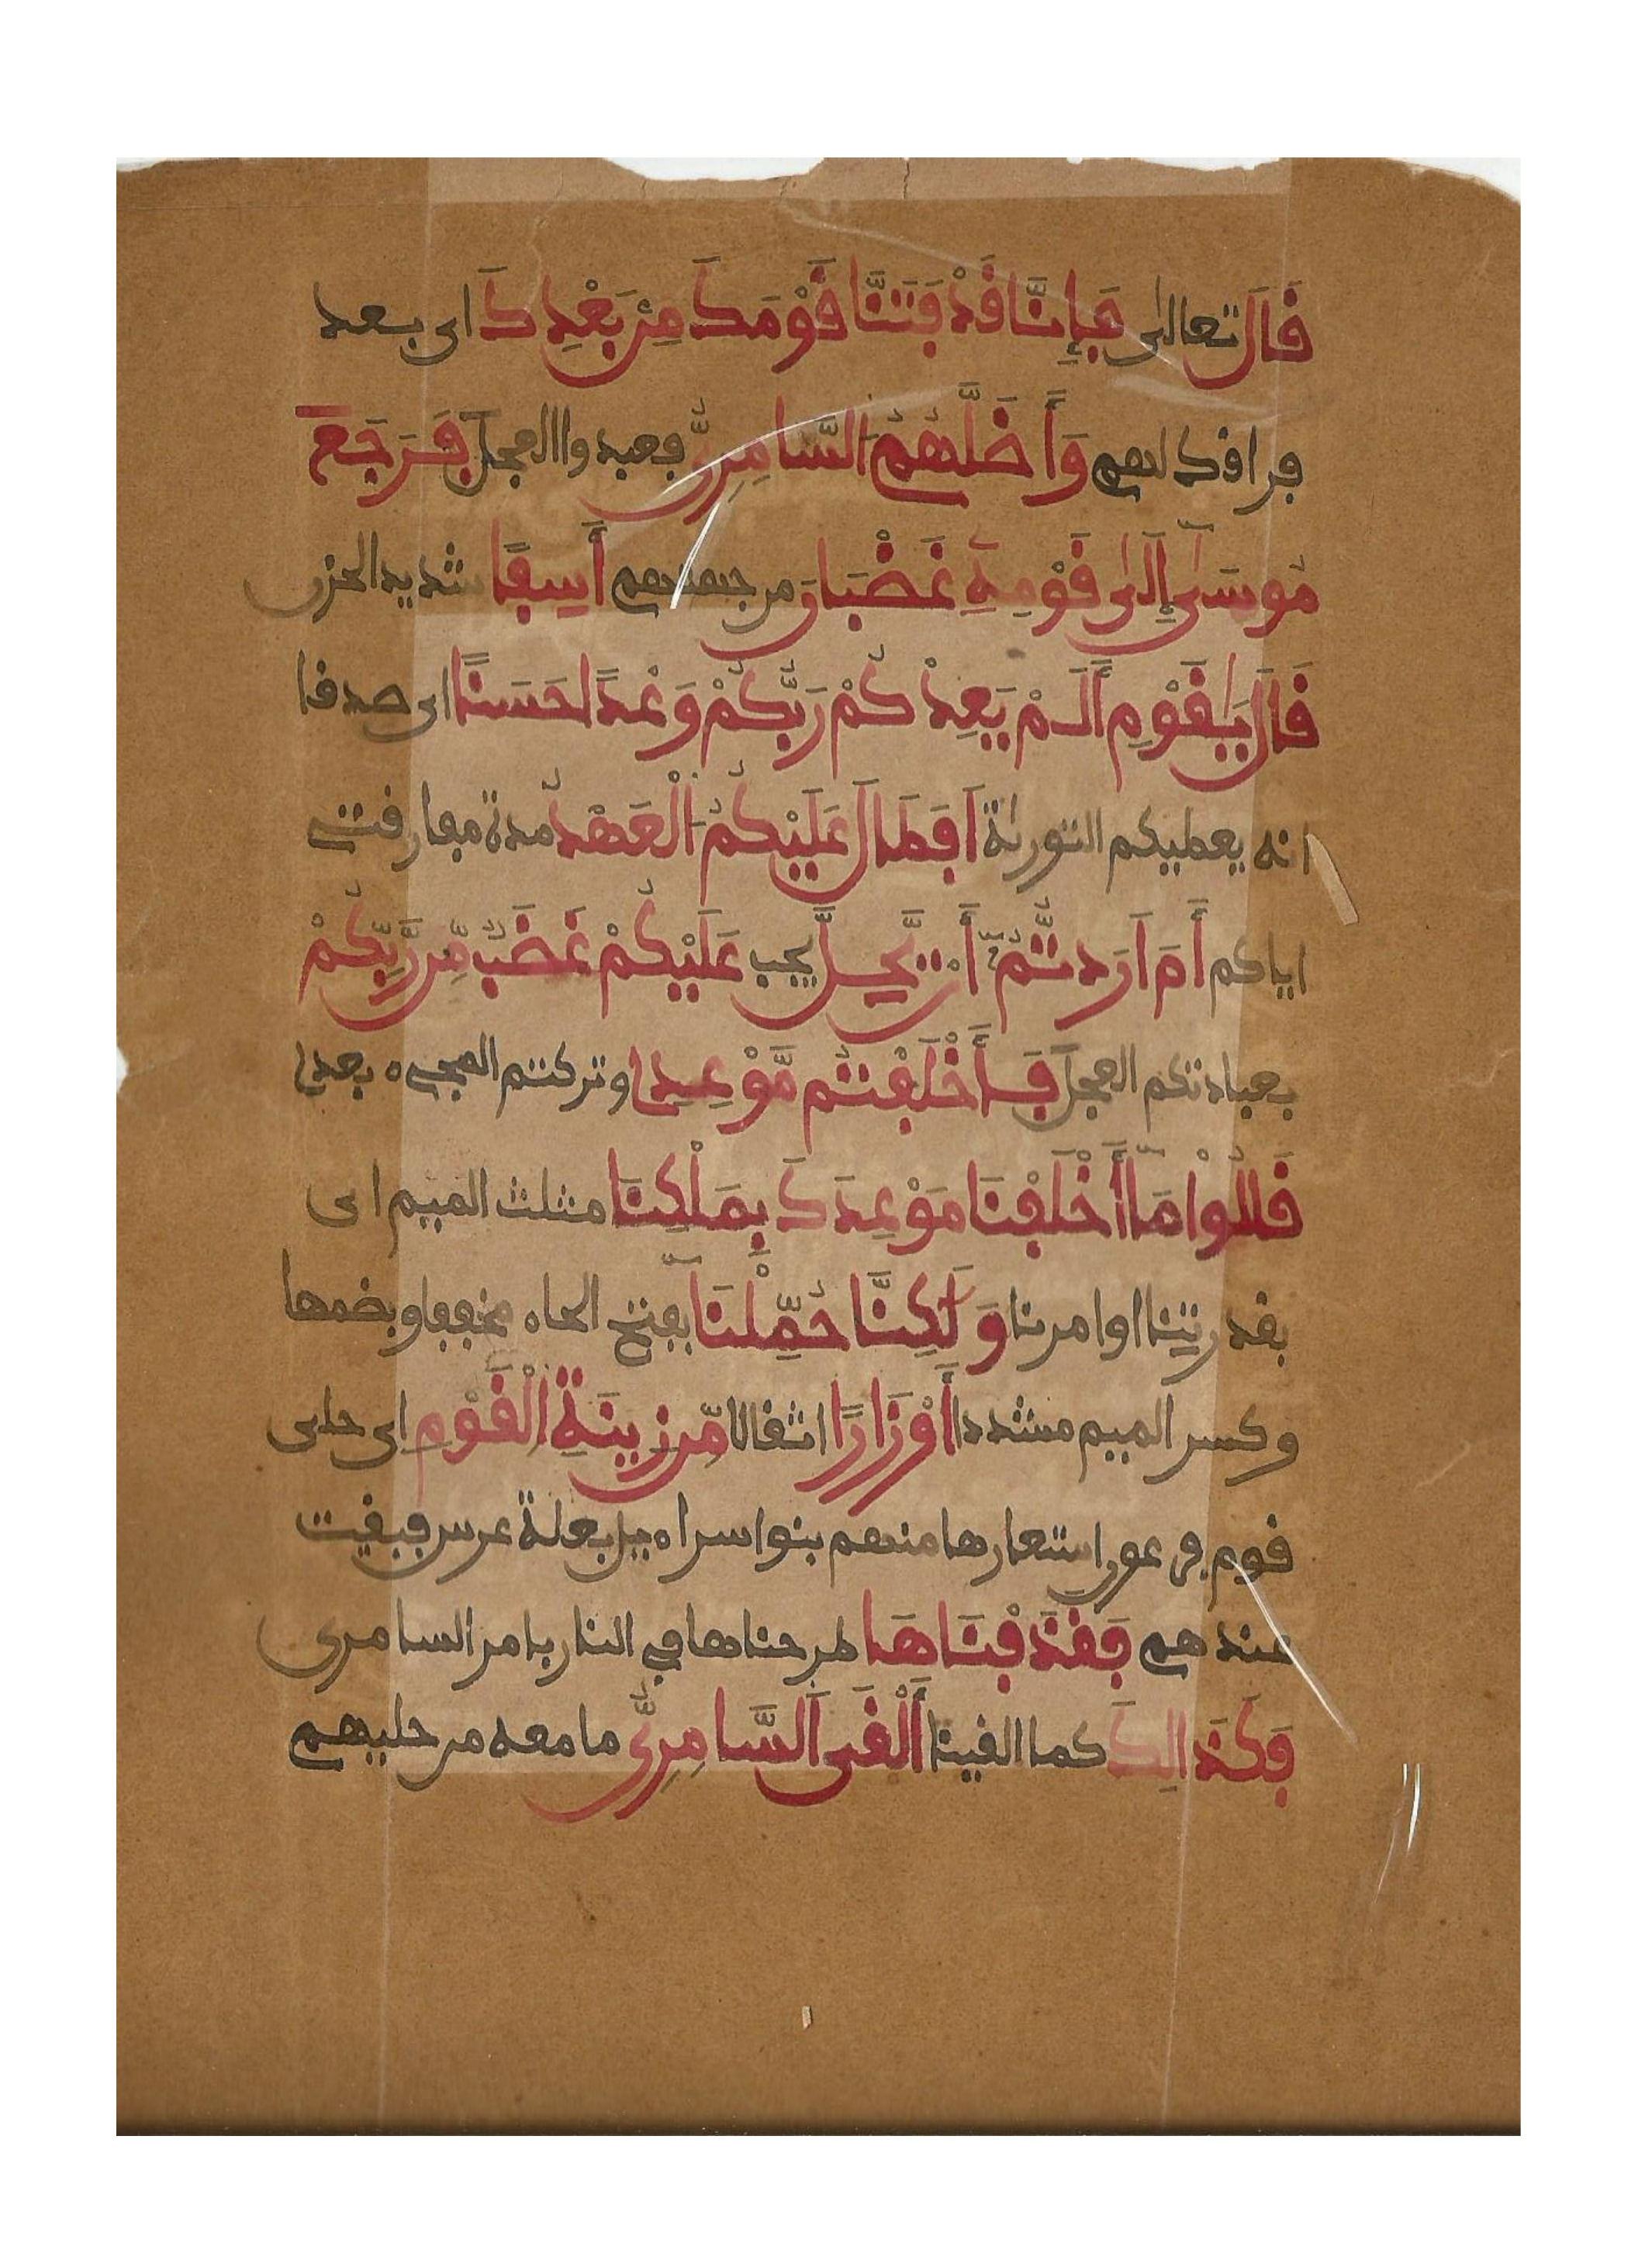 قَالَ تعالى فَإِنَّا قَدْ فَتَنَّا قَوْمَكَ مِنۢ بَعْدِكَ اى بعد
فراقك لهم وَأَضَلَّهُمُ السَّامِرِىُّ فعبدوا العجل فَرَجَعَ
مُوسَىٰٓ إِلَىٰ قَوْمِهِۦ غَضْبَانَ من جهتهم أَسِفًا شديد الحزن
قَالَ يَٰقَوْمِ أَلَمْ يَعِدْكُمْ رَبُّكُمْ وَعْدًا حَسَنًا اى صدقا
انه يعطيكم التورىٰة أَفَطَالَ عَلَيْكُمُ الْعَهْدُ مدة مفارقتى
اياكم أَمْ أَرَدتُّمُۥٓ أَنْ يَّحِلَّ يجب عَلَيْكُمْ غَضَبٌ مِّن رَّبِّكُمْ
بعبادتكم العجل فَأَخْلَفْتُم مَّوْعِدِى وتركتم المجىء بعدى
قَالُوا۟ مَآ أَخْلَفْنَا مَوْعِدَكَ بِمَلْكِنَا مثلث الميم اى
بقدرتنا او امرنا وَلَٰكِنَّا حُمِّلْنَآ بفتح الحاء مخففا وبضمها
وكسر الميم مشددا أَوْزَارًا اثقالا مِّن زِينَةِ الْقَوْمِ اى حلى
قوم فرعون استعارها منهم بنوا سراءيل بعلة عرس فبقيت
عندهم فَقَذَفْنَاهَا طرحناها في النار بامر السامرى
فَكَذَالِكَ كما القينا أَلْقَى السَّامِرِىُّ ما معه من حليهم